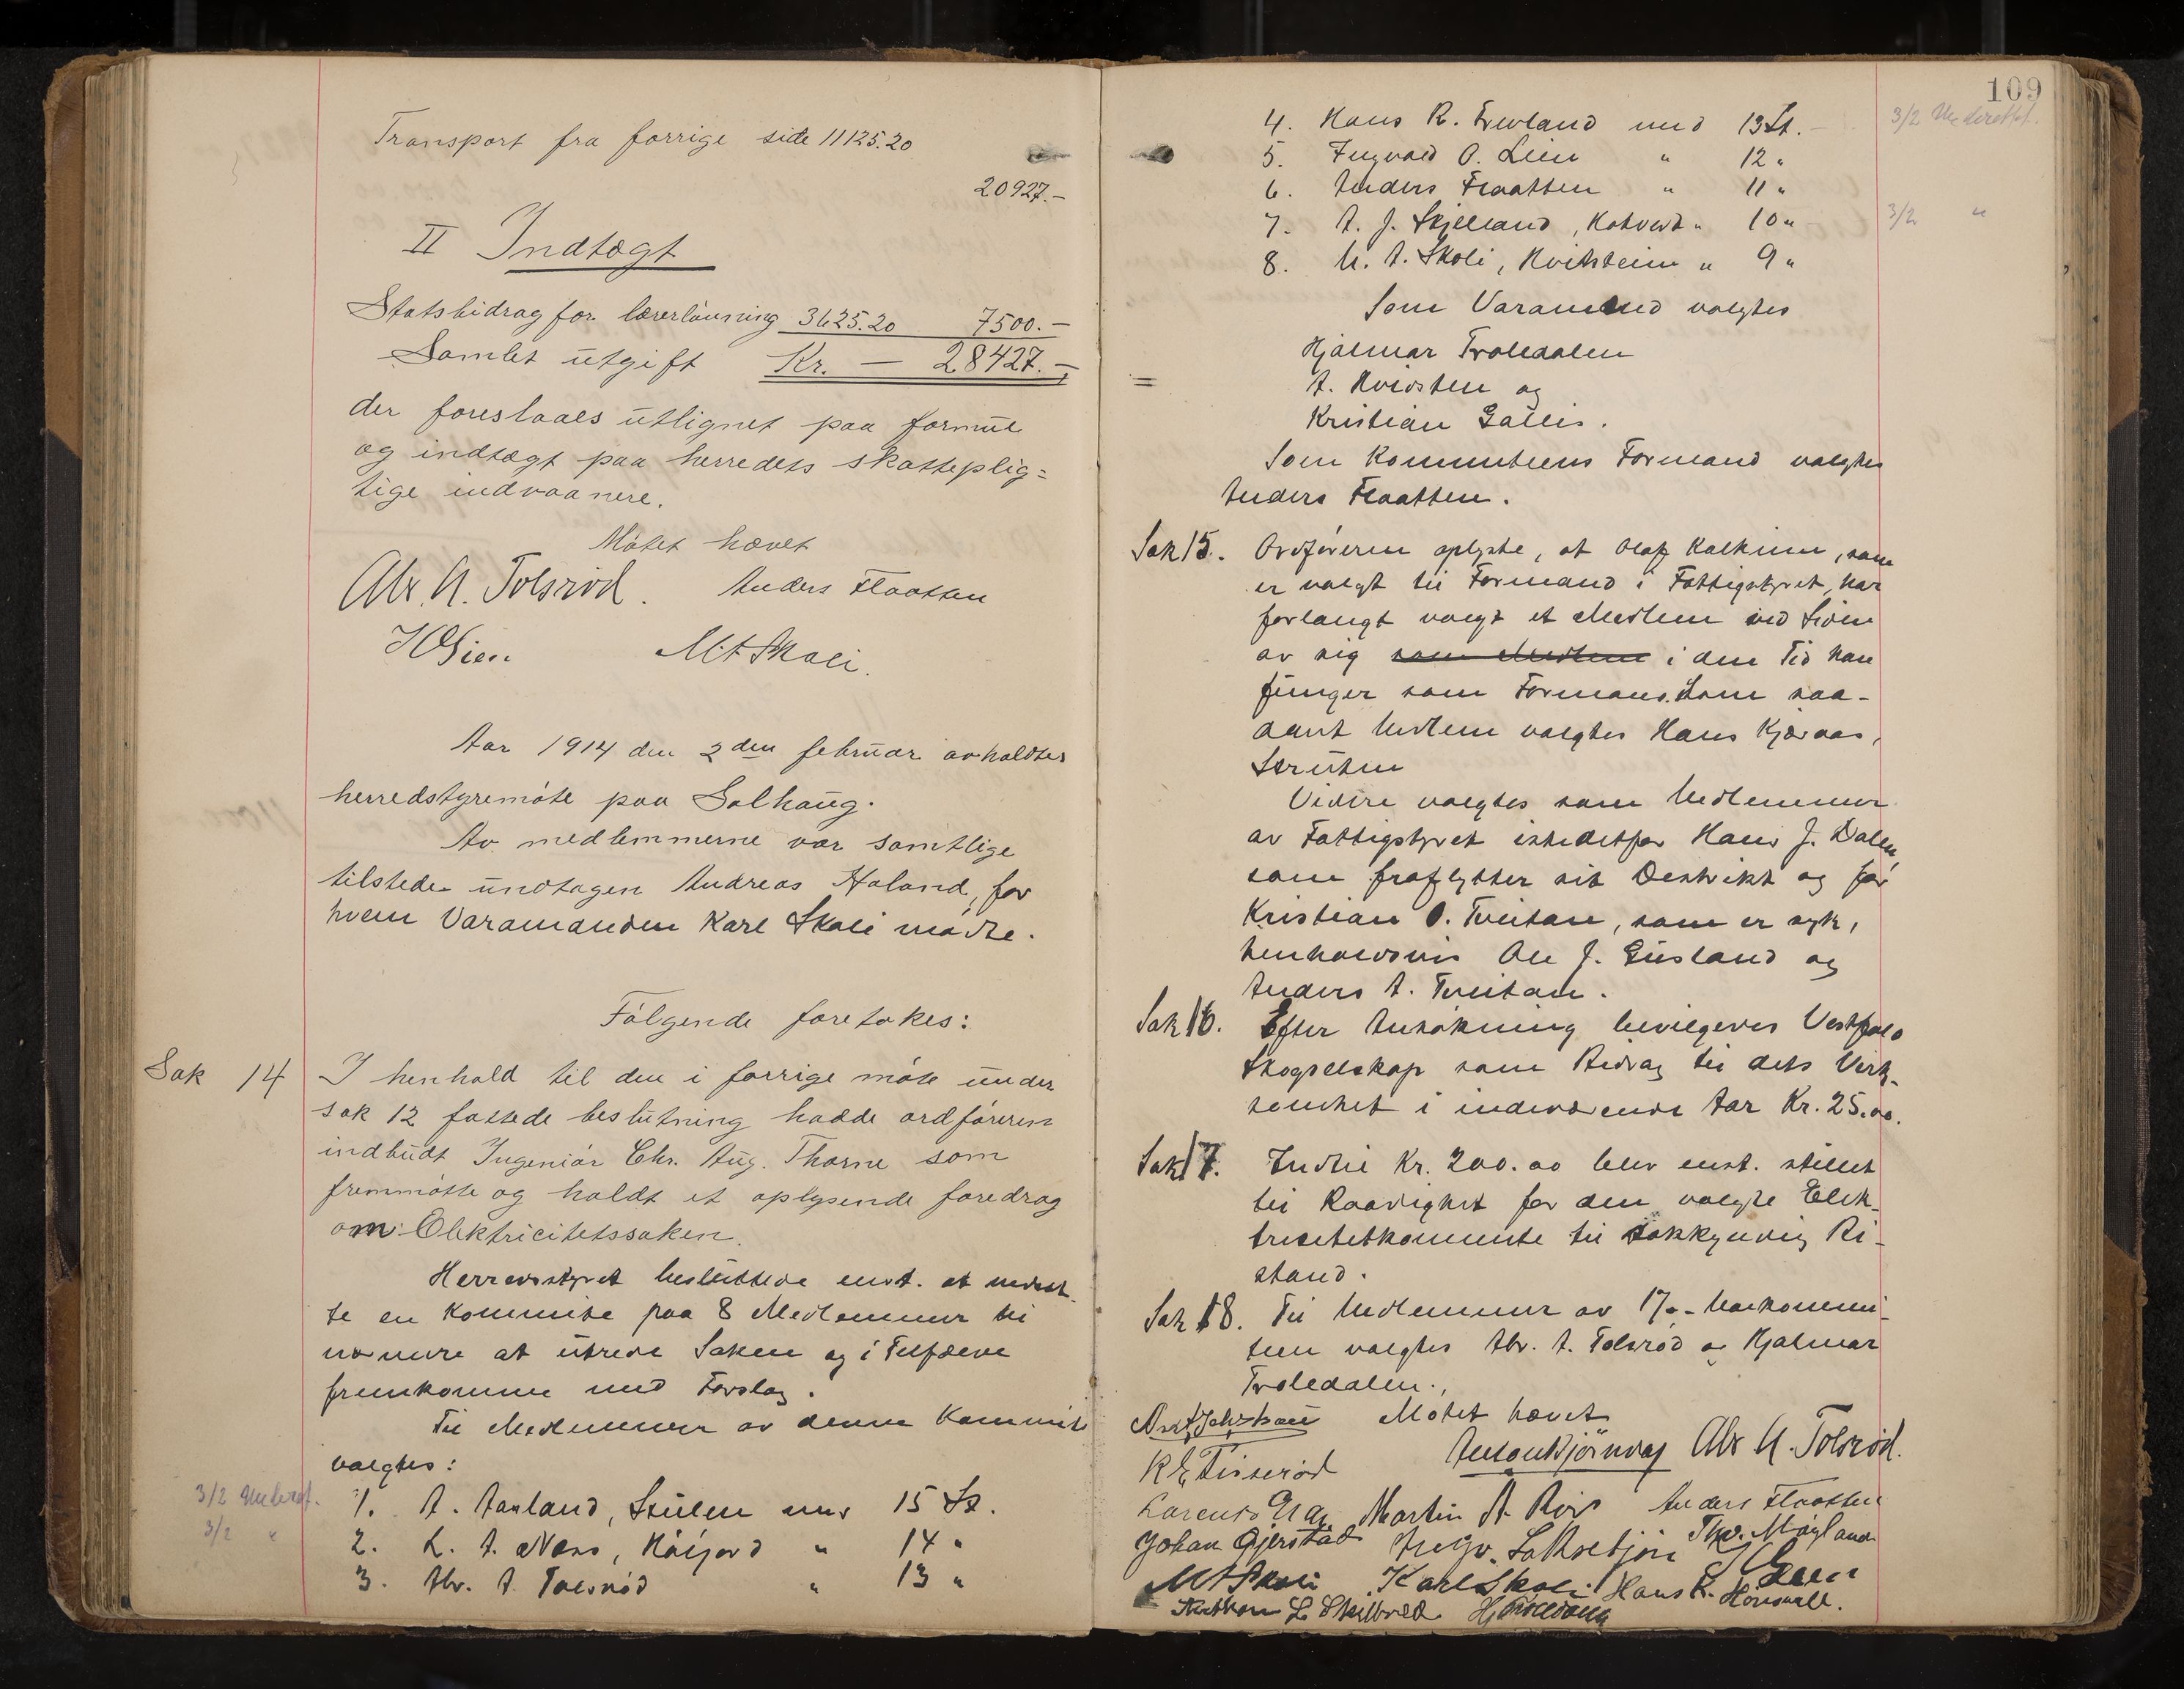 Transport fra forrige side 11125.20
20927.-
II Indtægt
Statsbidrag for lærerlønning 3625.20 7500.-
Samlet utgift Kr. — 28427.-
der foreslaaes utlignet paa formue
og indtægt paa herredets skatteplig=
tige indvaanere.
Møtet hævet
Abr. A. Tolsrød. Anders Flaatten
M A Skoli.
Aar 1914 den 2den februar avholdtes
herredstyremøte paa Solhaug.
Av medlemmerne var samtlige
tilstede undtagen Andreas Holand, for
hvem Varamanden Karl Skoli mødte.
Følgende foretokes:
Sak 14 I henhold til den i forrige møte under
sak 12 fattede beslutning hadde ordføreren
indbudt Ingeniør Chr. Aug. Thorne som
fremmøtte og holdt et oplysende foredrag
om Elektricitetssaken.
Herredsstyret besluttede enst. at nedsæt-
te en Kommite paa 8 Medlemmer til
nærmere at utrede Saken og i Tilfælde
fremkomme med Forslag.
Til Medlemmer av denne Kommite
valgtes:
3/2 Underet. 1. A. Aarland, Skulen med 15 St.
3/2 " 2. L. A. Næss, Høijord " 14 "
3. Abr. A. Tolsrød " 13 "
109
4. Hans R. Evvland med 13 St. - 3/2 Underettet.
5. Ingvald O. Lien " 12 "
6. Anders Flaatten " 11 "
7. A. J. Skjelland, Kodvedt " 10 " 3/2 "
8. M. A. Skoli, Kvitstein " 9 "
Som Varamænd valgtes
Hjalmar Trolldalen
A. Kvidsten og
Kristian Gallis.
Som Kommiteens Formand valgtes
Anders Flaatten.
Sak 15. Ordføreren oplyste, at Olaf Kalkinn, som
er valgt til Formand i Fattigstyret, har
forlangt valgt et Medlem ved Siden
av sig som Medlem i den Tid han
funger som Formand. Som saa-
dant Medlem valgtes Hans Kjæraas,
Struten
Videre valgtes som Medlemmer
av Fattigstyret istedetfor Hans J. Dalen,
som fraflytter sit Destrikt og for
Kristian O. Tveitan, som er syk,
henholdsvis Ole J. Gusland og
Anders A. Tveitan.
Sak 16. Efter Ansøkning bevilgedes Vestfold
Skogselskap som Bidrag til dets Virk-
somhet i indeværende Aar Kr. 25.00.
Sak 17. Indtil Kr. 200.00 blev enst. stillet
til Raadighet for den valgte Elek-
tricitetkommite til sakkyndig Bi-
stand.
Sak 18. Til Medlemmer av 17. Maikommi-
teen valgtes Abr. A. Tolsrød og Hjalmar
Trolldalen.
Møtet hævet
Anton Bjørndag Abr A. Tolsrød.
Martin A. Anders Flaatten
Johan Gjerstad Ingv. Thv. Møyland
M A Skoli Karl Skoli Hans R.
L Skilbred Hj Trolldalen